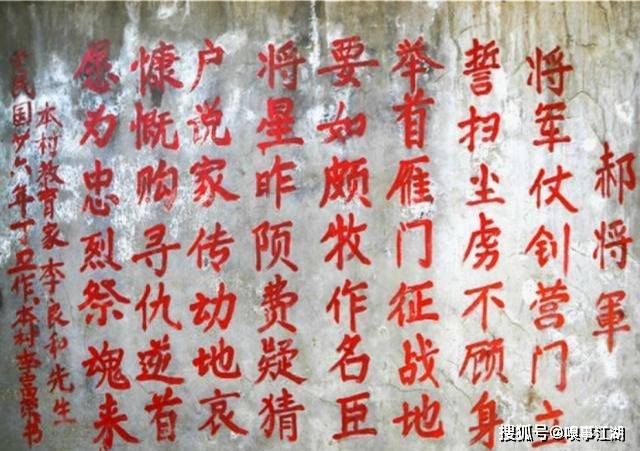 郝将軍
将军仗钊营门立
誓扫尘虏不顾身
举首雁门征战地
要如颇牧作名臣
将星昨陨费疑猜
户说家传动地哀
慷慨购寻仇逆首
愿为忠烈祭魂来
本村教育家李良和先生
民国廿六年丁卫作.本村李富荣书
搜狐号@嗅事江湖